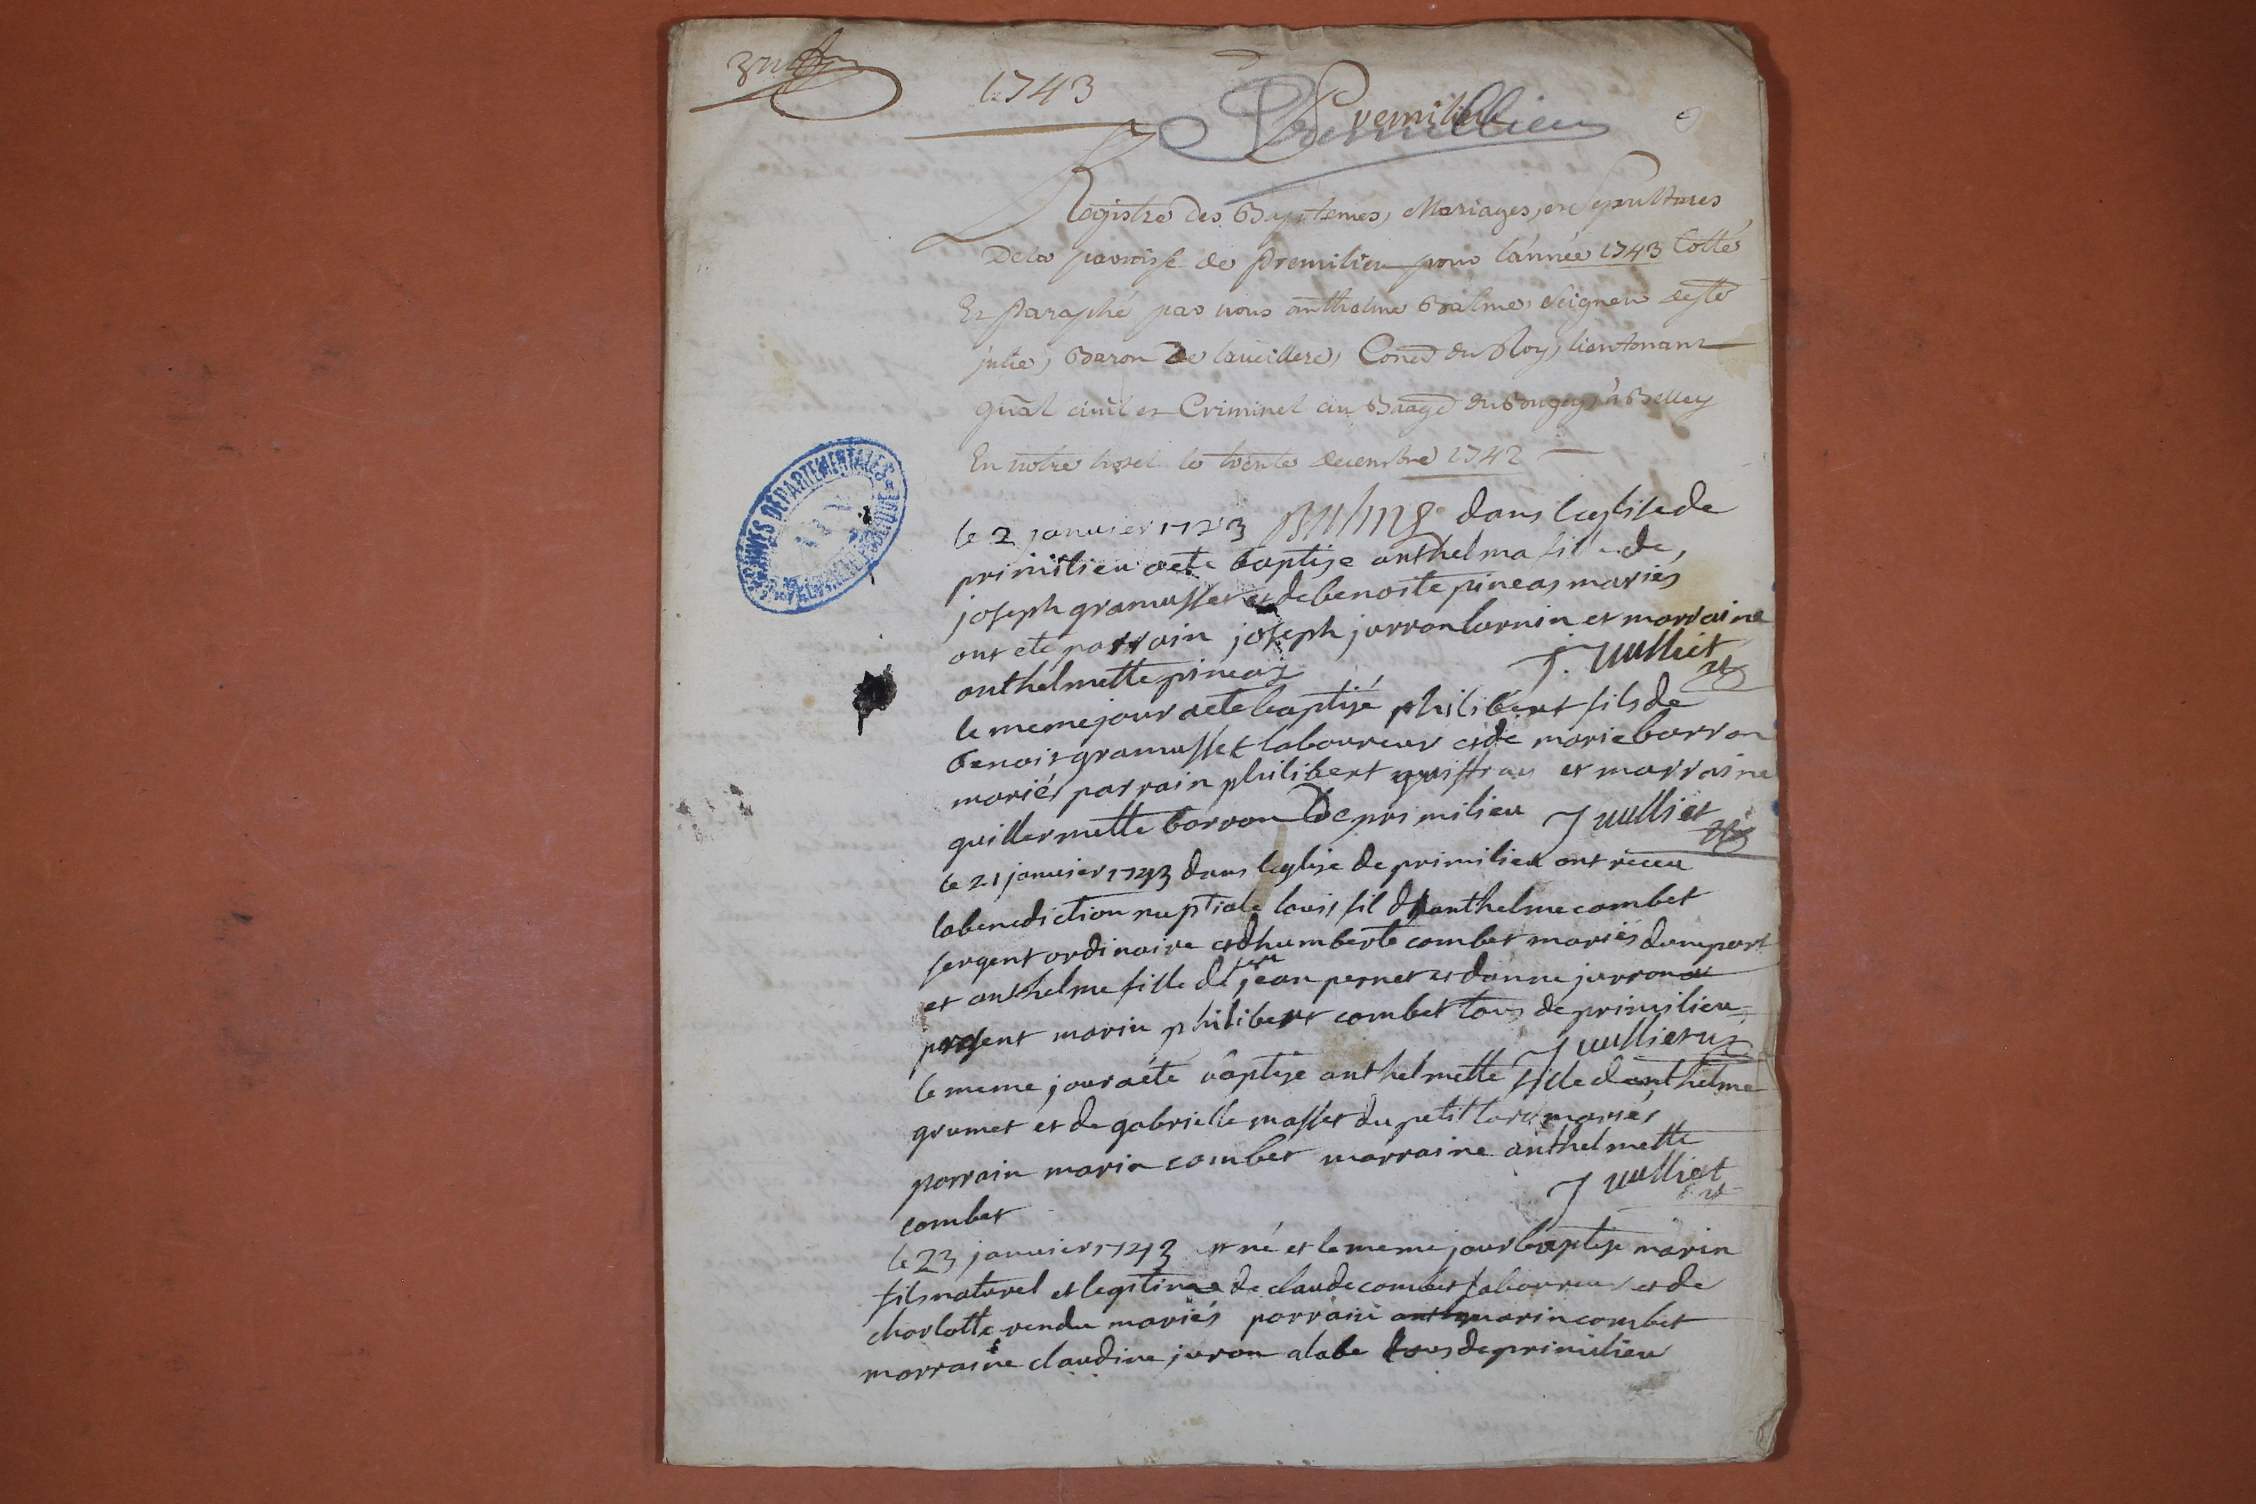 1743
Premillieu
Premillieu
Registre des Baptemes, Mariages, et Sepultures
De la paroisse de premilieu pour l'année 1743 Cotté
Et Paraphé par nous anthelme Balme, seigneur de ste
julie, Baron de laveillere, Coner du Roy, lieutenant
gnal civil et Criminel au Baage du Bougey, à Belley
En notre hotel le trente decembre 1742
ARCHIVES DÉPARTEMENTALES
le 2 janvier 1743 Balme dans leglise de
primilieu aeté baptise anthelma fille de
joseph gramusset et de benoite pineas mariés
ont ete parrain joseph jurron lornin et marraine
anthelmette pineaz J. Jullliet
le meme jour aeté baptisé philibert fils de
benoit gramusset laboureur et de marie borron
mariés parrain philibert et marraine
guillermette borron de primilieu Jullliet
le 21 janvier 1743 dans leglise de primilieu ont receu
la benediction nuptiale louis fil d'anthelme combet
sergent ordinaire et dhumberte combet mariés dune part
et anthelme fille de feu jean pernet et danne jurron
present marin philibert combet tous de primilieu
Jullliet
le meme jour aété baptise anthelmette fille danthelme
grumet et de gabrielle masset du petit mariés
parrain marin combet marraine anthelmette
combet Jullliet
le 23 janvier 1743 est né et le meme jour baptise marin
fils naturel et legitime de claude combet laboureur et de
charlotte rendu mariés parrain marin combet
marraine claudine juron alabe tous de primilieu